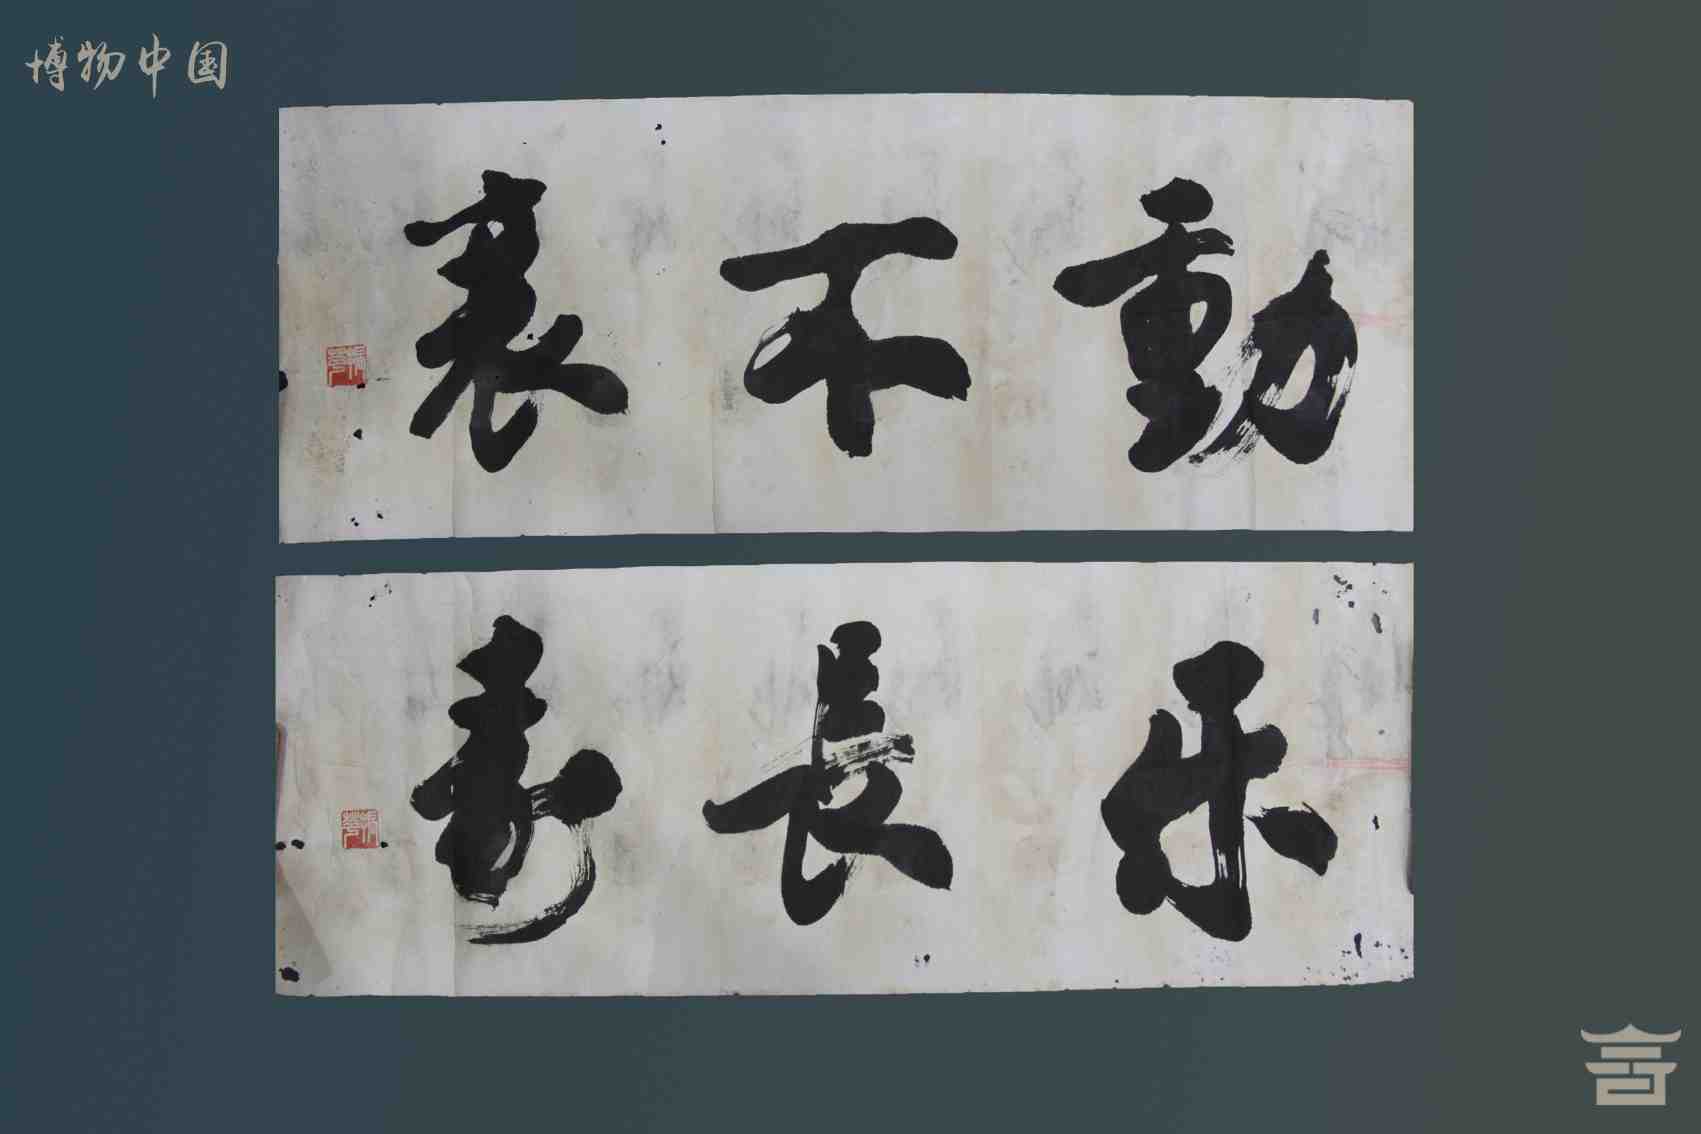 博物中国
動不衰
乐長寿